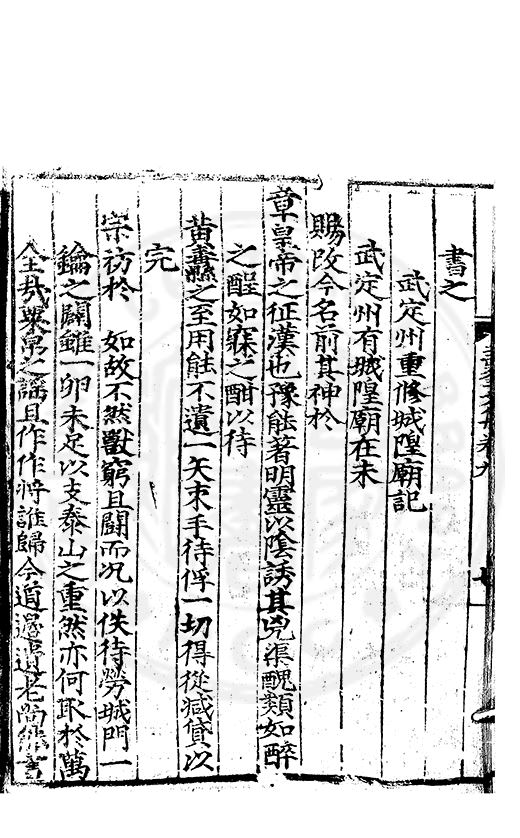 書之
武定州重修城隍廟記
武定州有城隍廟在未
賜改今名前其神於
章皇帝之征漢也豫能著明靈以陰誘其兇渠醜類如醉
之酲如寐之酣以待
黃纛之至用能不遺一矢束手待俘一切得從減貸以
完
宗祊於 如故不然獸窮且鬭而况以佚待勞城門一
鑰之闢雖一卵未足以支泰山之重然亦何取於萬
全哉粟帛之謡且作作將誰歸今道邊遺老尚能言